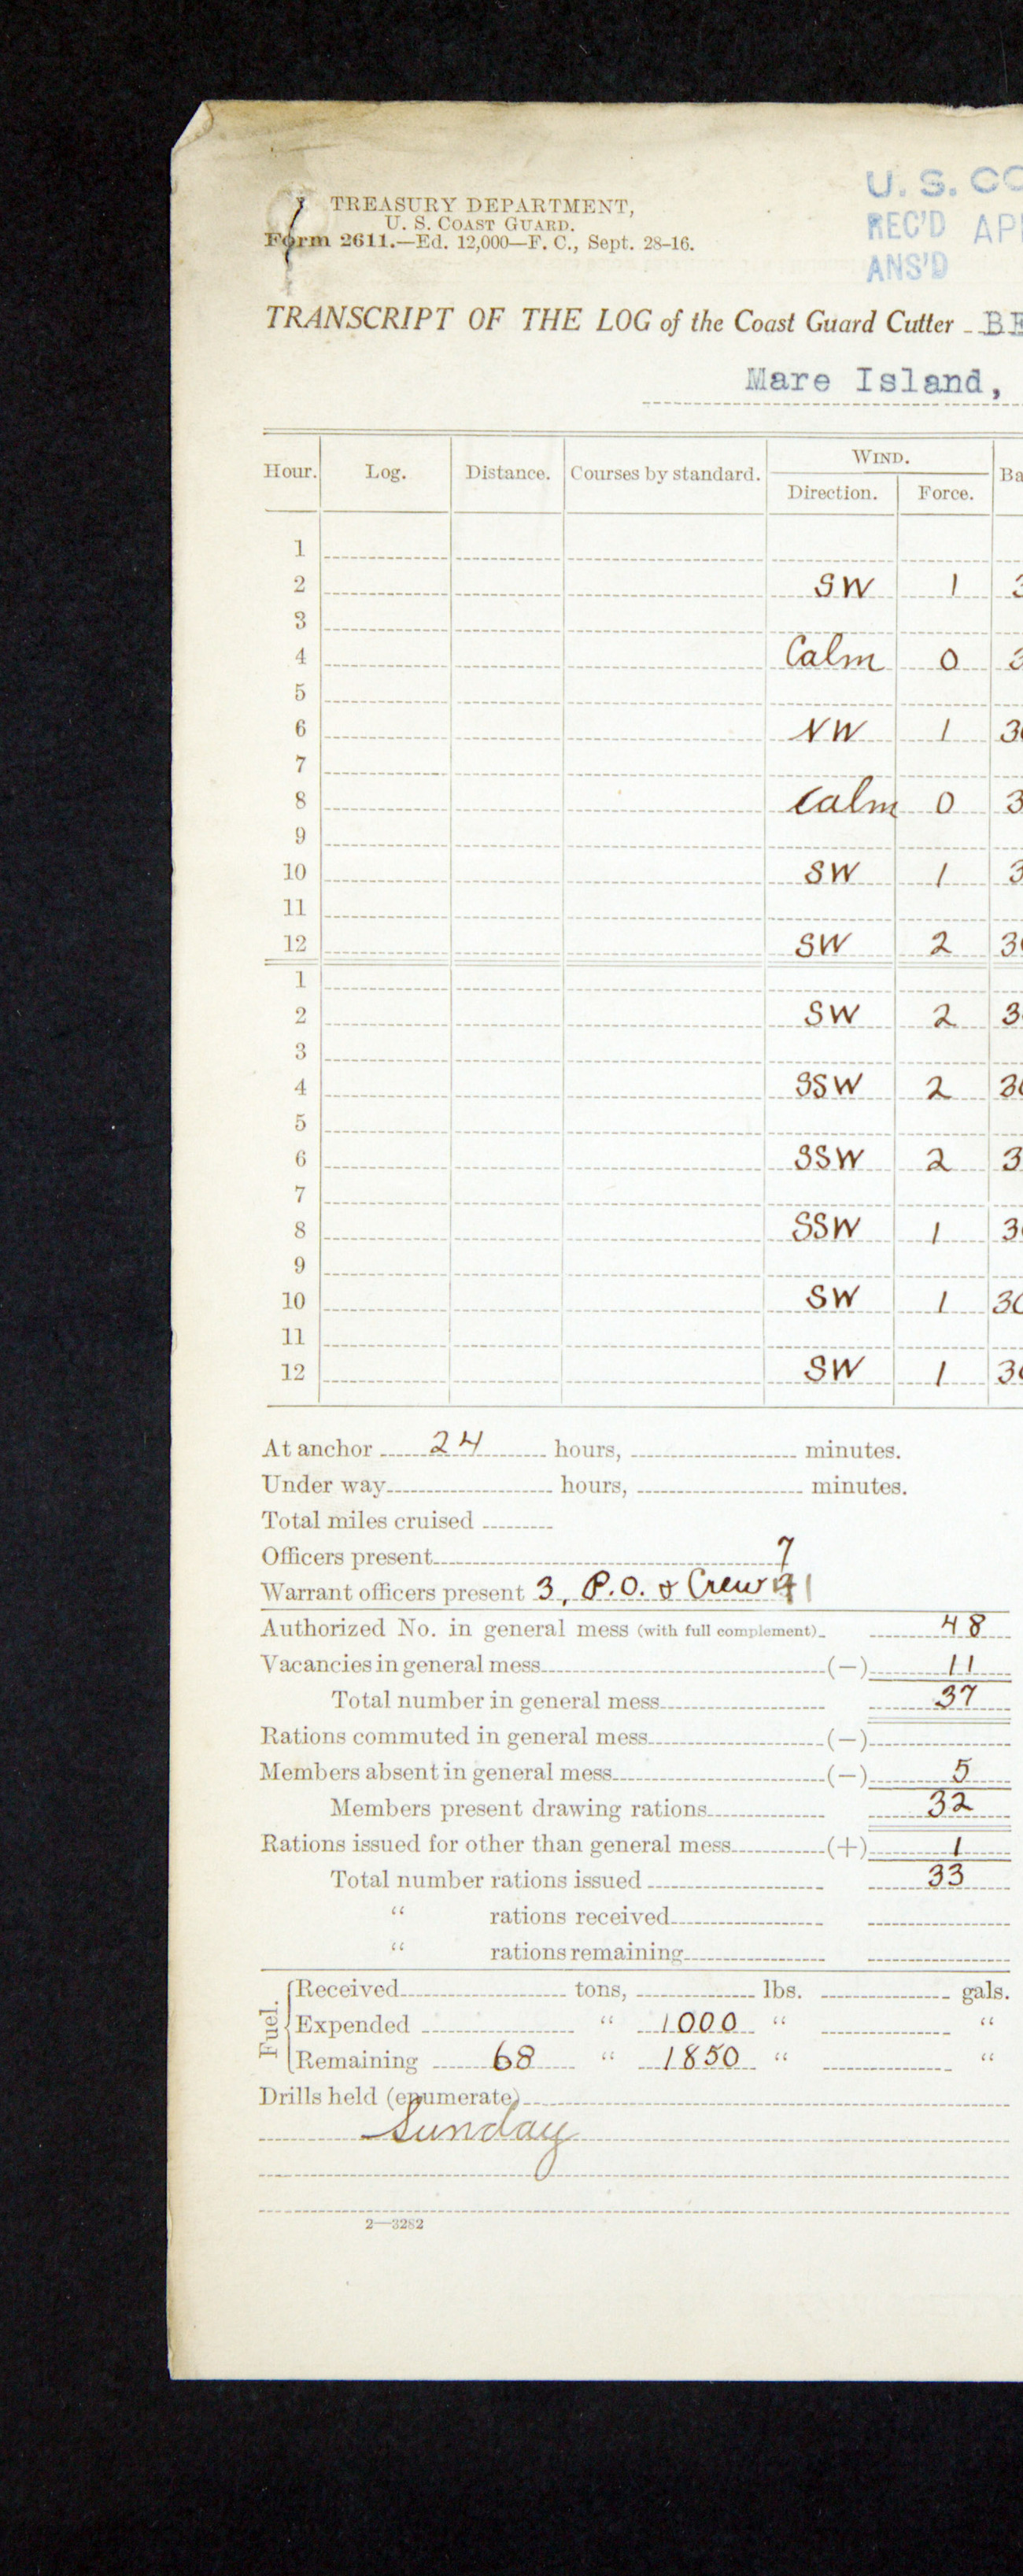 TREASURY DEPARTMENT,
U. S. COAST GUARD.
Form 2611.—Ed. 12,000—F. C., Sept. 28-16.
U. S. CO
REC'D AP
ANS'D
TRANSCRIPT OF THE LOG of the Coast Guard Cutter BE
Mare Island,
Hour. Log. Distance. Courses by standard. WIND. Ba
Direction. Force.
1
2 SW 1 3
3
4 Calm 0 3
5
6 NW 1 30
7
8 Calm 0 3
9
10 SW 1 3
11
12 SW 2 30
1
2 SW 2 30
3
4 SSW 2 30
5
6 SSW 2 3
7
8 SSW 1 30
9
10 SW 1 30
11
12 SW 1 30
At anchor 24 hours, minutes.
Under way hours, minutes.
Total miles cruised
Officers present 7
Warrant officers present 3, P.O. & Crew 41
Authorized No. in general mess (with full complement) 48
Vacancies in general mess (—) 11
Total number in general mess 37
Rations commuted in general mess (—)
Members absent in general mess (—) 5
Members present drawing rations 32
Rations issued for other than general mess (+) 1
Total number rations issued 33
" rations received
" rations remaining
Fuel. Received tons, lbs. gals.
Expended " 1000 " "
Remaining 68 " 1850 " "
Drills held (enumerate)
Sunday
2—3282